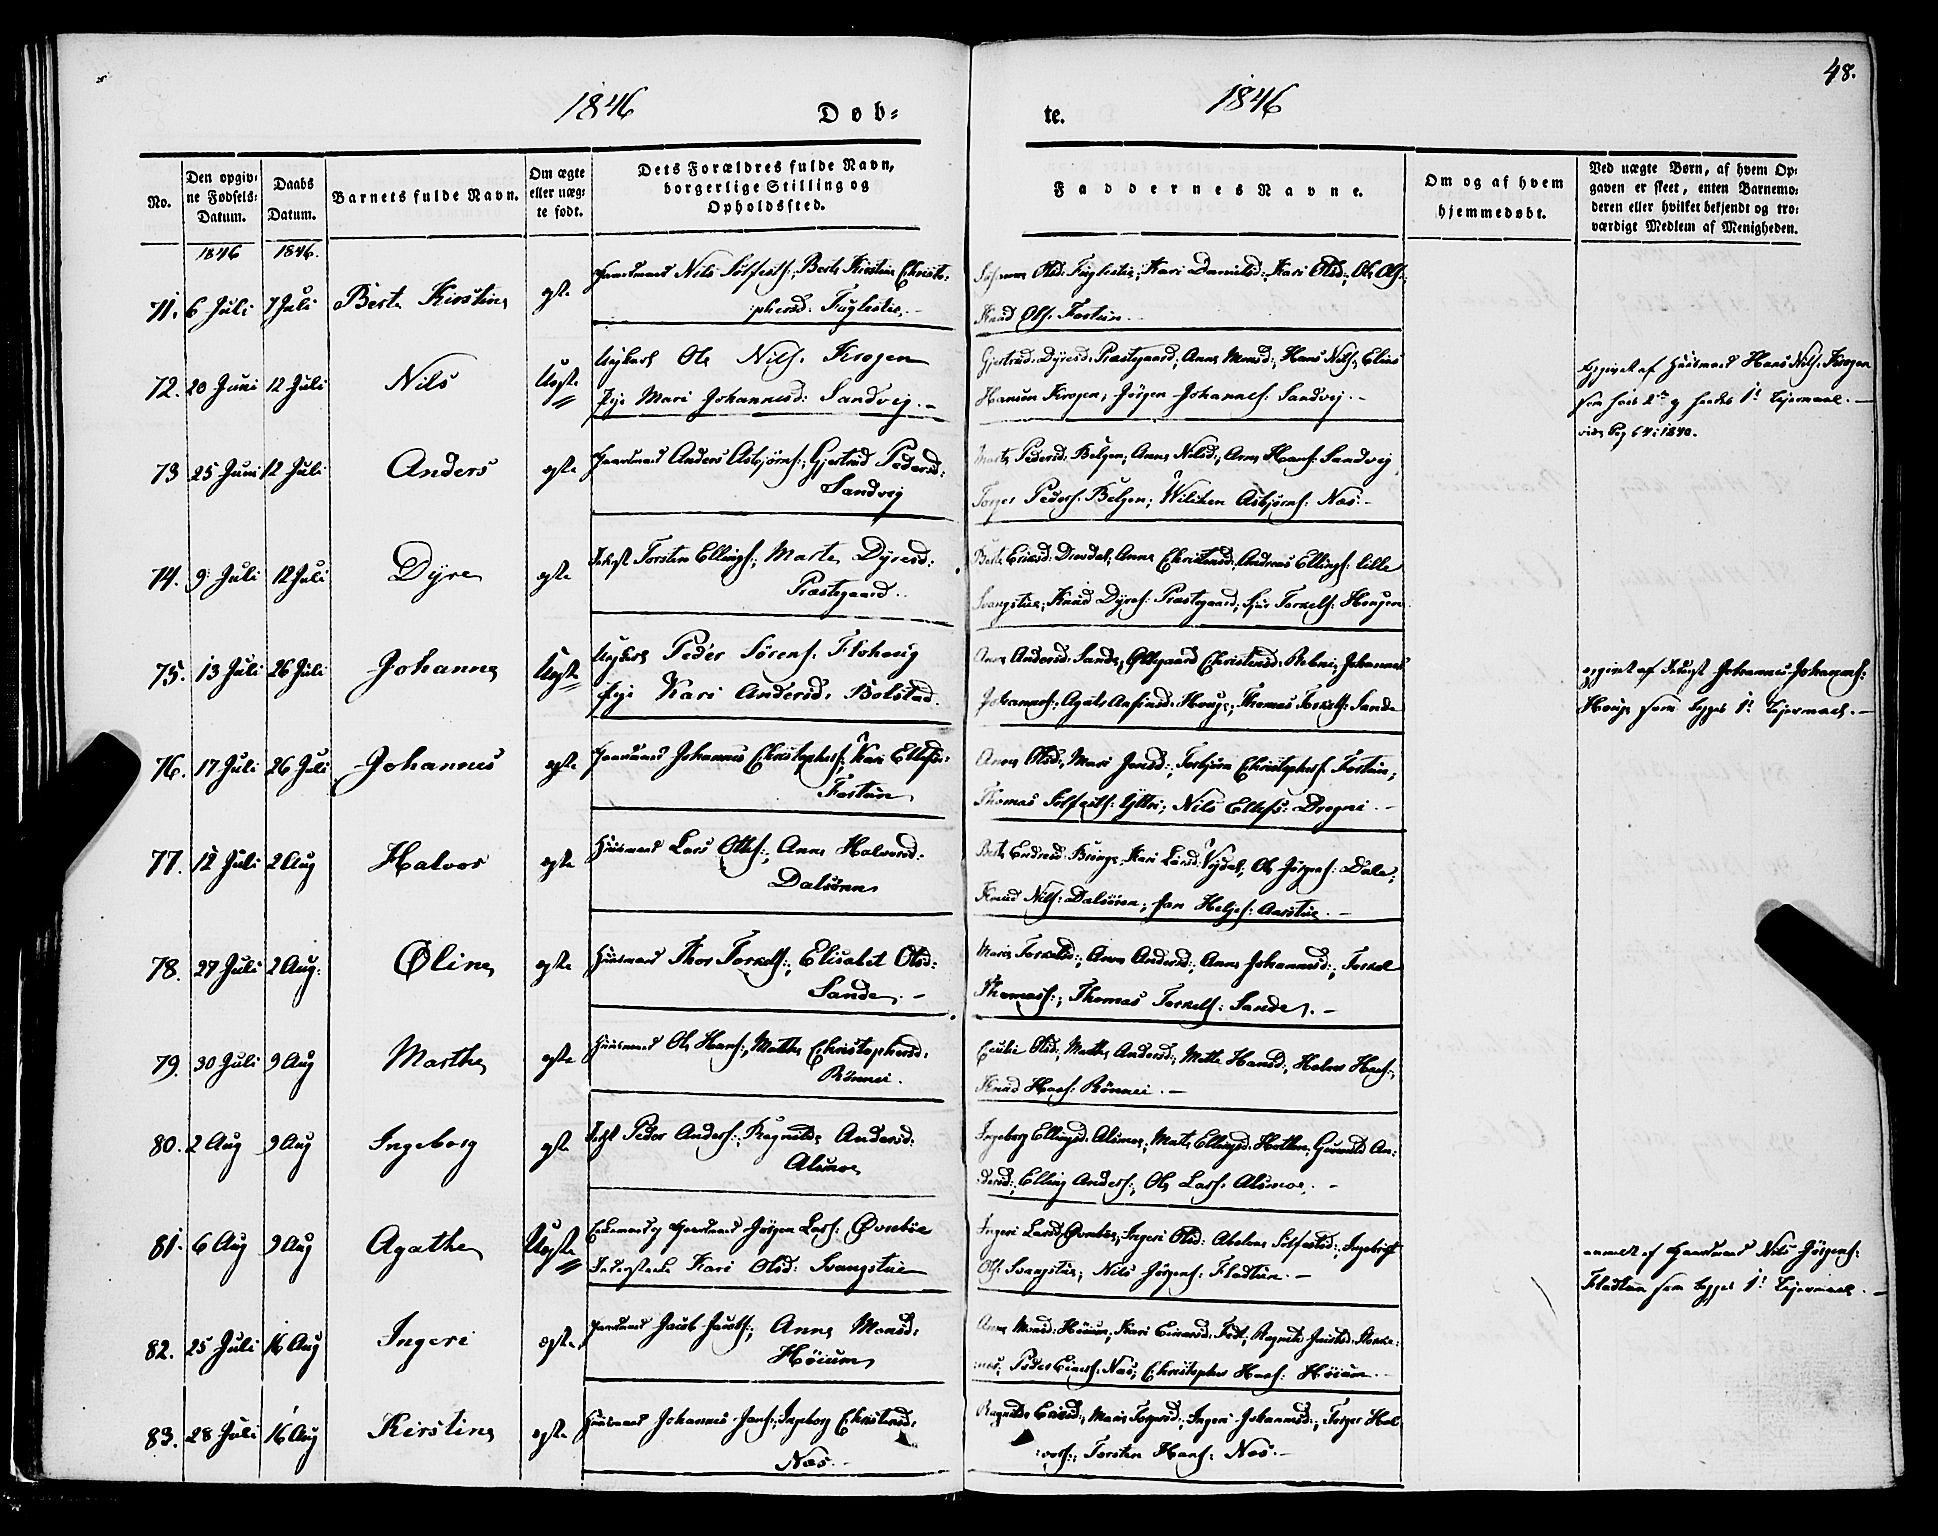 48.
1846
Døb-
te.
1846
No.
Den opgiv-
ne Fødsels-
Datum.
Daabs
Datum.
Barnets fulde Navn.
Om ægte
eller uæg-
te født.
Dets Forældres fulde Navn,
borgerlige Stilling og
Opholdssted.
Faddernes Navne.
Om og af hvem
hjemmedøbt.
Ved uægte Børn, af hvem Op-
gaven er skeet, enten Barnemo-
deren eller hvilket bekjendt og tro-
værdigt Medlem af Menigheden.
1846 1846.
71. 6 Juli 7 Juli Berte Kirstine egte Gaardmand Nils Sølfests: Berte Kirstine Christo-
phersd: Fuglestie.
Olsd: Fuglestie, Kari Danielsd:, Kari Olsd:, Ole Ols:
Knud Ols: Fortun.
72. 20 Juni 12 Juli Nils Uegte Ungkarl Ole Nils: Krogen
Pige Mari Johannesd: Sandvig.
Gjertrud Dyresd: Præstegaard, Anne Monsd:, Hans Nils:, Elias
Hansen Krogen, Jörgen Johannes: Sandvig.
Opgivet af Huusmand Hans Nils: Krogen
1840.
73 25 Juni 12 Juli Anders egte Gaardmand Anders Asbjörns:, Gjertrud Pedersd:
Sandvig
Marte Pedersd: Bolgen, Anne Nilsd:, Arne Hans: Sandvig,
Torger Peders: Bolgen; Williken Asbjörns: Næs.
74. 9 Juli 12 Juli Dyre egte Torsten Ellings:, Marte Dyresd:
Præstegaard.
Berte Eriksd: Drevdal, Anne Christensd:, Andreas Ellings: lille
Svangstue, Knud Dyres: Præstegaard, Torkels: Haugen
75. 13 Juli 26 Juli Johanne Uegte Ungkarl Peder Sörens: Flohoug
Pige Kari Andersd: Bolstad.
Anne Andersd: Sande, Oldegaard Christensd: Johannes
Johannes:, Agate Ansfinsd: Houge, Thomas Torkels: Sande
opgivet af Johannes Johannes:
Houge som
76. 17 Juli 26 Juli Johannes egte Gaardmand Johannes Christophers:, Kari Ellefsd:
Fortun
Anne Olsd:, Mari Jonsd:, Torbjörn Christophers: Fortun,
Thomas Sølfests: Yttri, Nils Ellefs: Dregni.
77. 12 Juli 2 Aug Halvor egte Huusmand Lars Ols:, Anne Halvorsd:
Dalsören
Berte Endresd: Bringe, Kari Larsd: Vigdal, Ole Jörgens: Dale,
Knud Nils: Dalsören, Helges: Aarstue.
78. 27 Juli 2 Aug: Oline egte Huusmand Thor Torkels:, Elisabet Olsd:
Sande.
Marie Torkelsd:, Anne Andersd:, Anne Johannesd:, Torkel
Thomass:, Thomas Torkels: Sande.
79. 30 Juli 9 Aug Marthe egte Huusmand Ole Hans:, Marthe Christophersd:
Rönnei.
Cicilie Olsd:, Marthe Andersd:, Mette Hansd:, Halvor Hans:
Knud Hans: Rönnei.
80. 2 Aug 9 Aug Ingeborg egte Peder Anders:, Ragnilde Andersd:
Alsmoe
Ingeborg Ellingsd: Alsmoe, Marte Ellingsd: An-
dersd:, Elling Anders:, Ole Lars: Alsmoe.
81. 6 Aug 9 Aug Agathe Uegte Enkemand og Gaardmand Jörgen Lars: Øvrebøe
Kari Olsd: Svangstue
Ingeri Larsd: Øvrebøe, Ingeri Olsd: Abelone Sølfestsd:, Ingebrigt
Ols: Svangstue, Nils Jörgens: Fladtun.
anmeldt af Gaardmand Nils Jörgens:
Fladtun som
82. 25 Juli 16 Aug Ingeri egte Gaardmand Jacob Jacobs:, Anne Monsd:
Høium
Anne Monsd: Høium, Kari Einarsd:
Peder Einars: Næs, Christopher Hans: Höium.
83. 28 Juli 16 Aug Kirstine egte Huusmand Johannes Jens:, Ingeborg Christensd:
Næs.
Ragnilde Eriksd:, Marie Torgersd:, Ingeri Johannesd:, Torger Hal-
vors:, Torsten Hans: Næs.